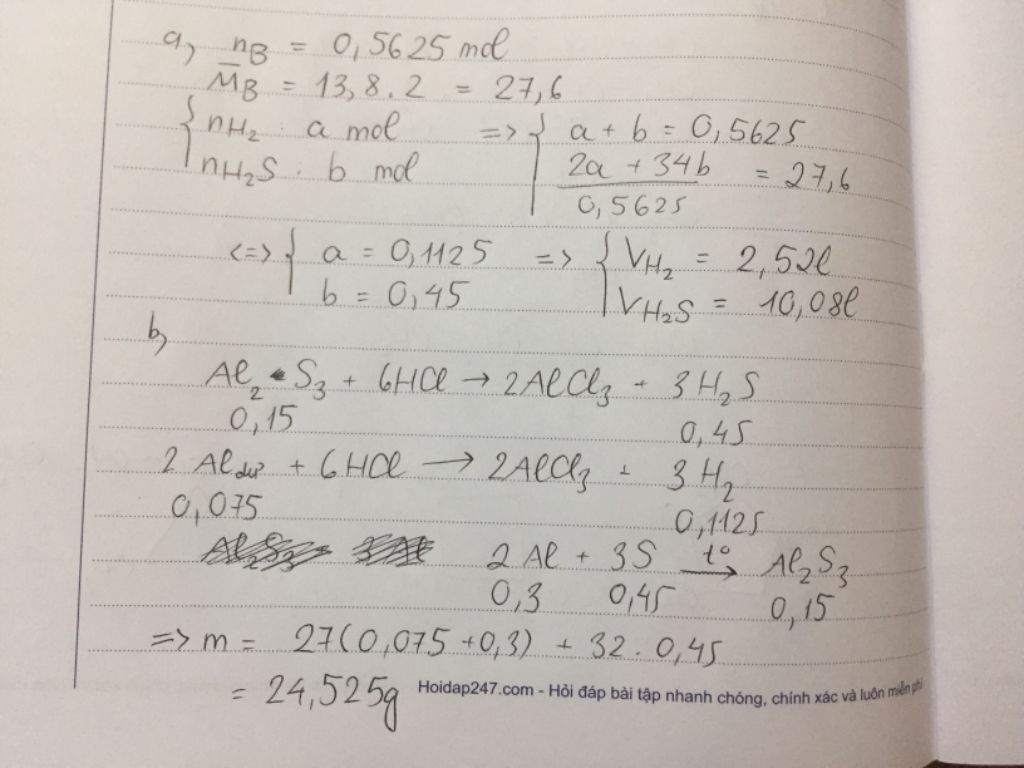 a, nB = 0,5625 mol
M̅B = 13,8.2 = 27,6
{ nH₂ : a mol => { a + b = 0,5625
nH₂S : b mol (2a + 34b)/0,5625 = 27,6
<=> { a = 0,1125 => { VH₂ = 2,52l
b = 0,45 VH₂S = 10,08l
b,
Al₂S₃ + 6HCl → 2AlCl₃ + 3H₂S
0,15 0,45
2 Al dư + 6HCl → 2AlCl₃ + 3H₂
0,075 0,1125
2Al + 3S t° → Al₂S₃
0,3 0,45 0,15
=> m = 27(0,075 + 0,3) + 32 . 0,45
= 24,525g
Hoidap247.com - Hỏi đáp bài tập nhanh chóng, chính xác và luôn miễn phí